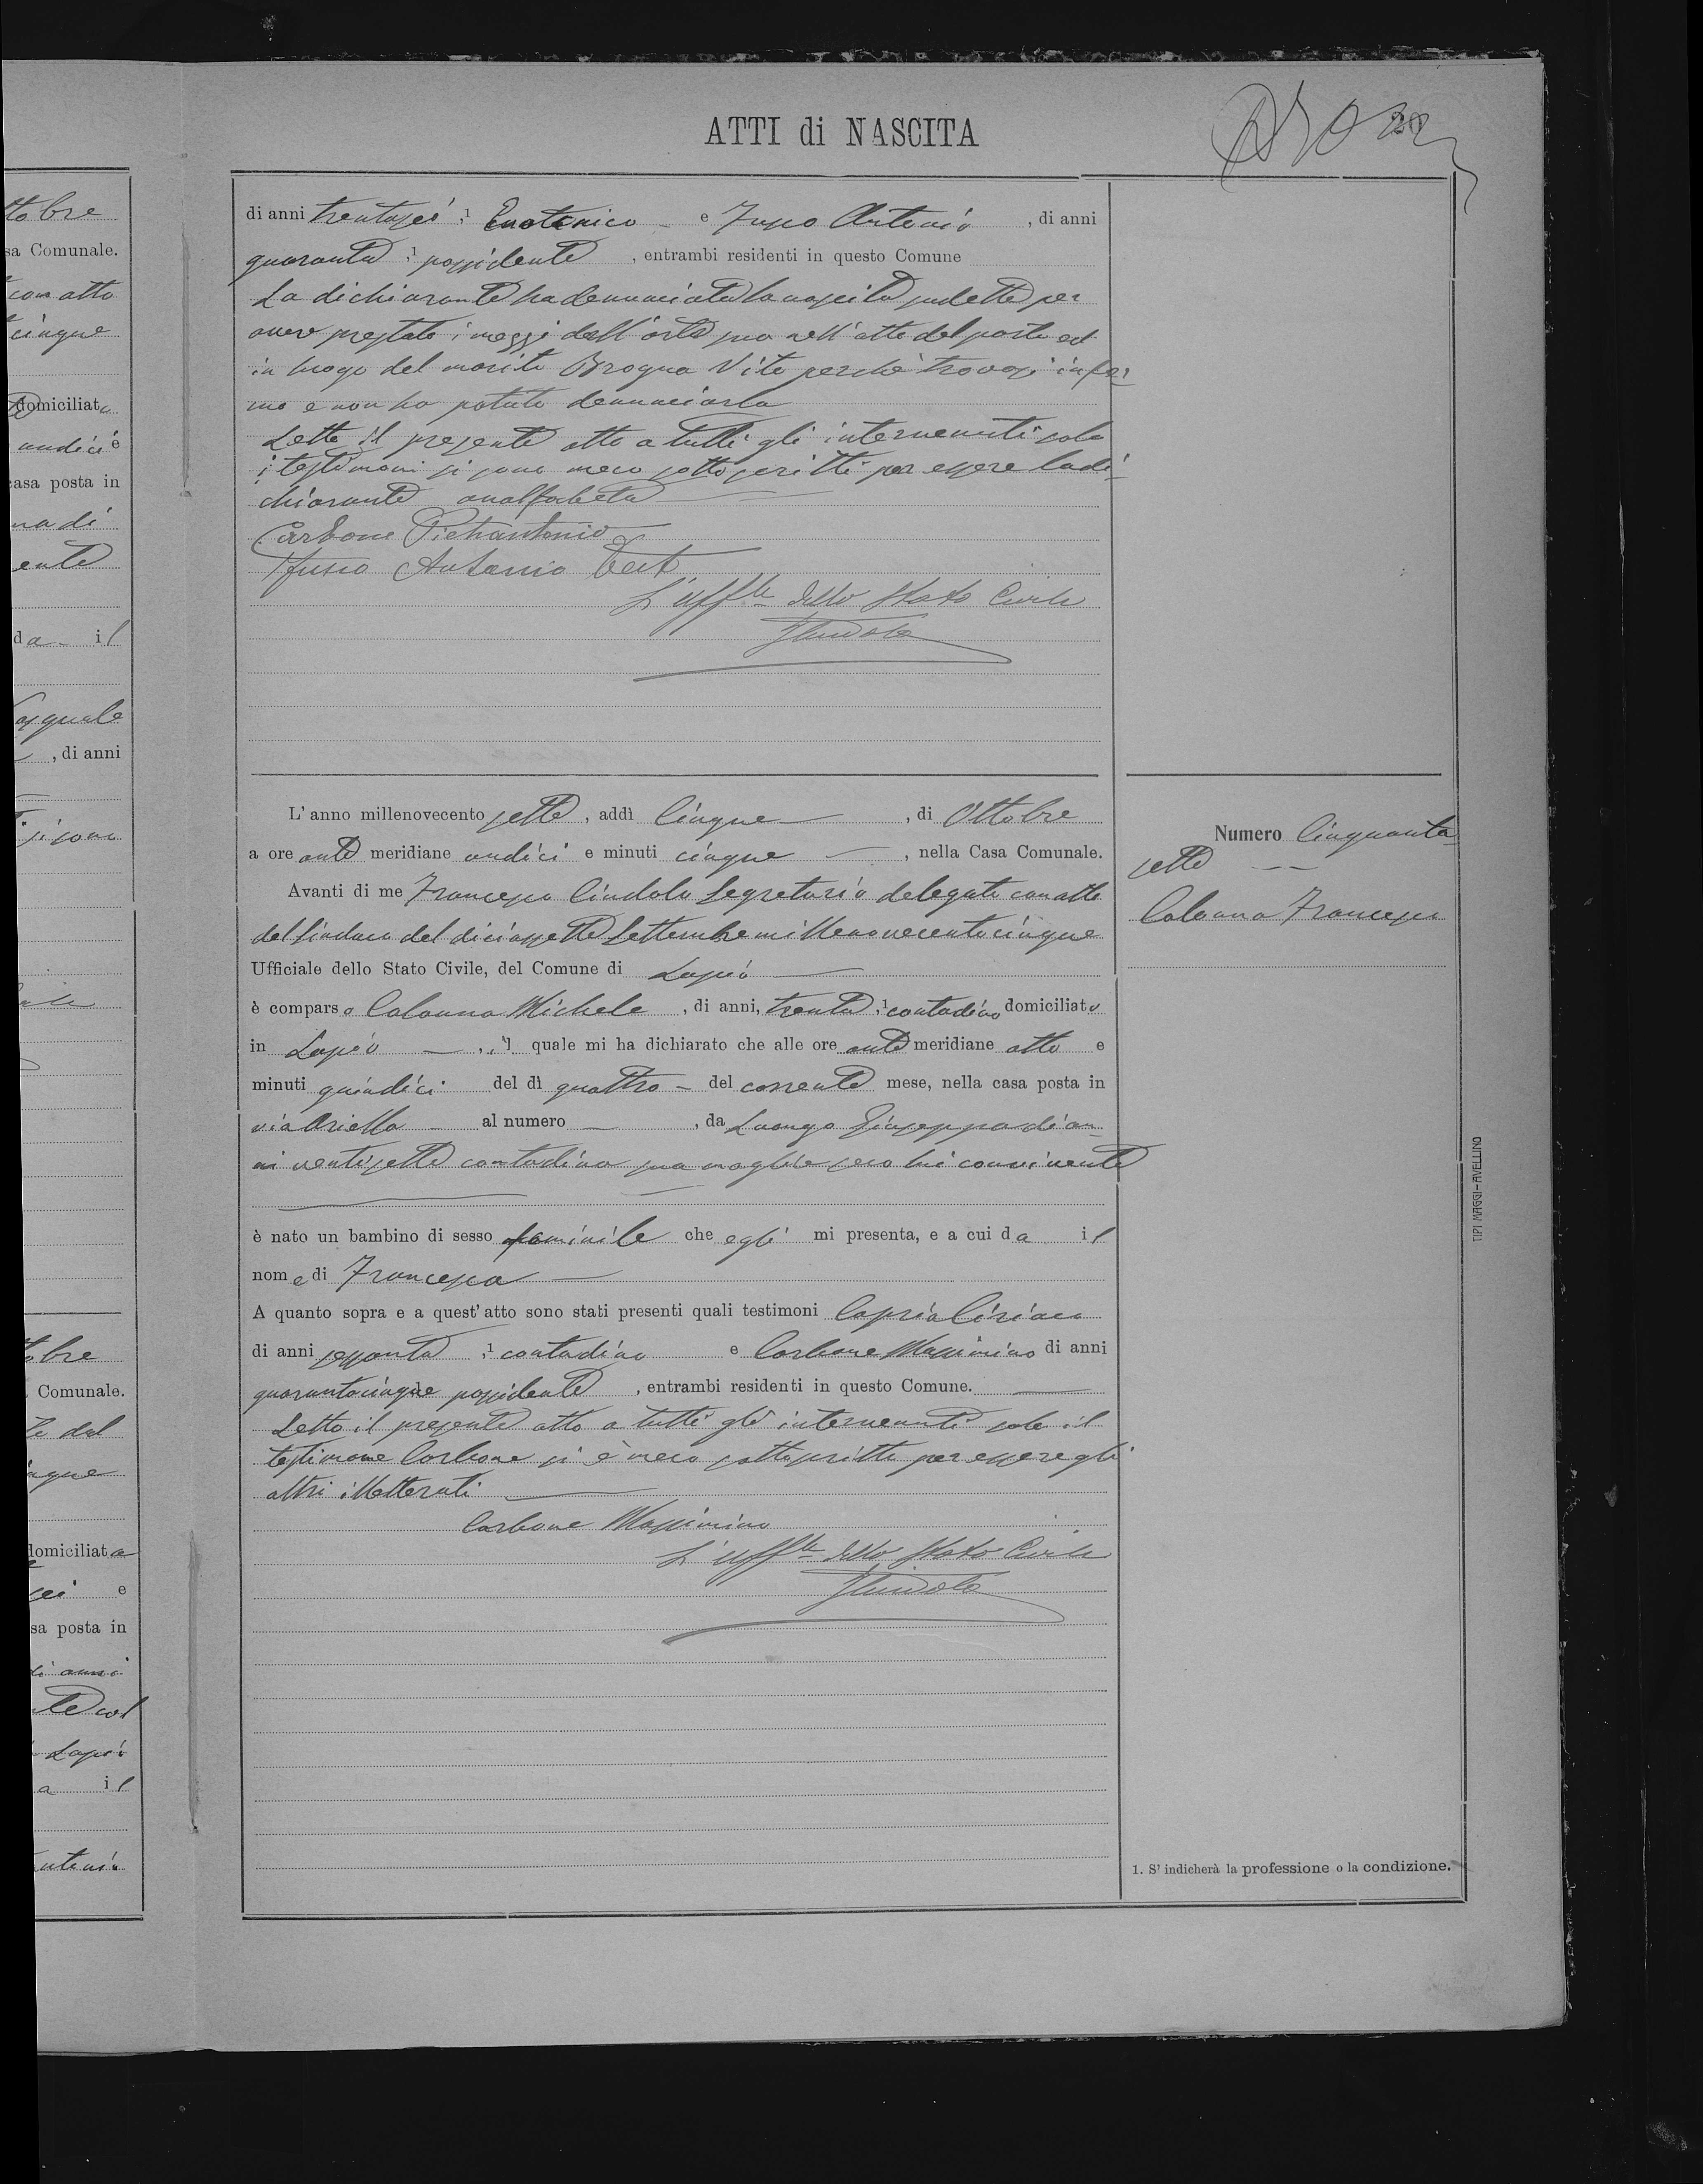 ATTI di NASCITA
di anni trentasei, 1 Enotecnico e Fusco Antonio, di anni
quaranta, 1 possidente, entrambi residenti in questo Comune
La dichiarante ha denunciato la nascita suddetta per
aver prestato i mezzi dell'arte sua nell'atto del parto ed
in luogo del marito Brogna Vito perchè trovasi infer-
mo e non ha potuto denunciarla
Letto il presente atto a tutti gli intervenuti solo
i testimoni si sono meco sottoscritti per essere la di-
chiarante analfabeta
Carbone Pietrantonio
Fusco Antonio Test
L'Uff.le dello Stato Civile
FCindolo
L'anno millenovecento sette, addì Cinque, di Ottobre
a ore ante meridiane undici e minuti cinque, nella Casa Comunale.
Avanti di me Francesco Cindolo Segretario delegato con atto
del Sindaco del diciassette Settembre millenovecentocinque
Ufficiale dello Stato Civile, del Comune di Lapio
è comparso Colonna Michele, di anni, trenta, 1 contadino domiciliato
in Lapio, il quale mi ha dichiarato che alle ore ante meridiane otto e
minuti quindici del dì quattro del corrente mese, nella casa posta in
via Ariella al numero —, da Luongo Giuseppa di an-
ni ventisette contadina sua moglie seco lui convivente
è nato un bambino di sesso feminile che egli mi presenta, e a cui da il
nome di Francesca
A quanto sopra e a quest'atto sono stati presenti quali testimoni Capria Ciriaco
di anni sessanta, 1 contadino e Carbone Massimino di anni
quarantacinque possidente, entrambi residenti in questo Comune.
Letto il presente atto a tutti gli intervenuti solo il
testimone Carbone si è meco sottoscritto per essere gli
altri illetterati
Carbone Massimino
L'Uff.le dello Stato Civile
FCindolo
Numero Cinquanta
sette
Colonna Francesca
1. S'indicherà la professione o la condizione.
TIPI MAGGI-AVELLINO
ttobre
sa Comunale.
con atto
cinque
domiciliata
undici e
asa posta in
na di
ente
da il
asquale
, di anni
si sono
bre
Comunale.
dal
inque
domiciliata
sei e
sa posta in
di anni
te col
Lapio
a il
ntonio